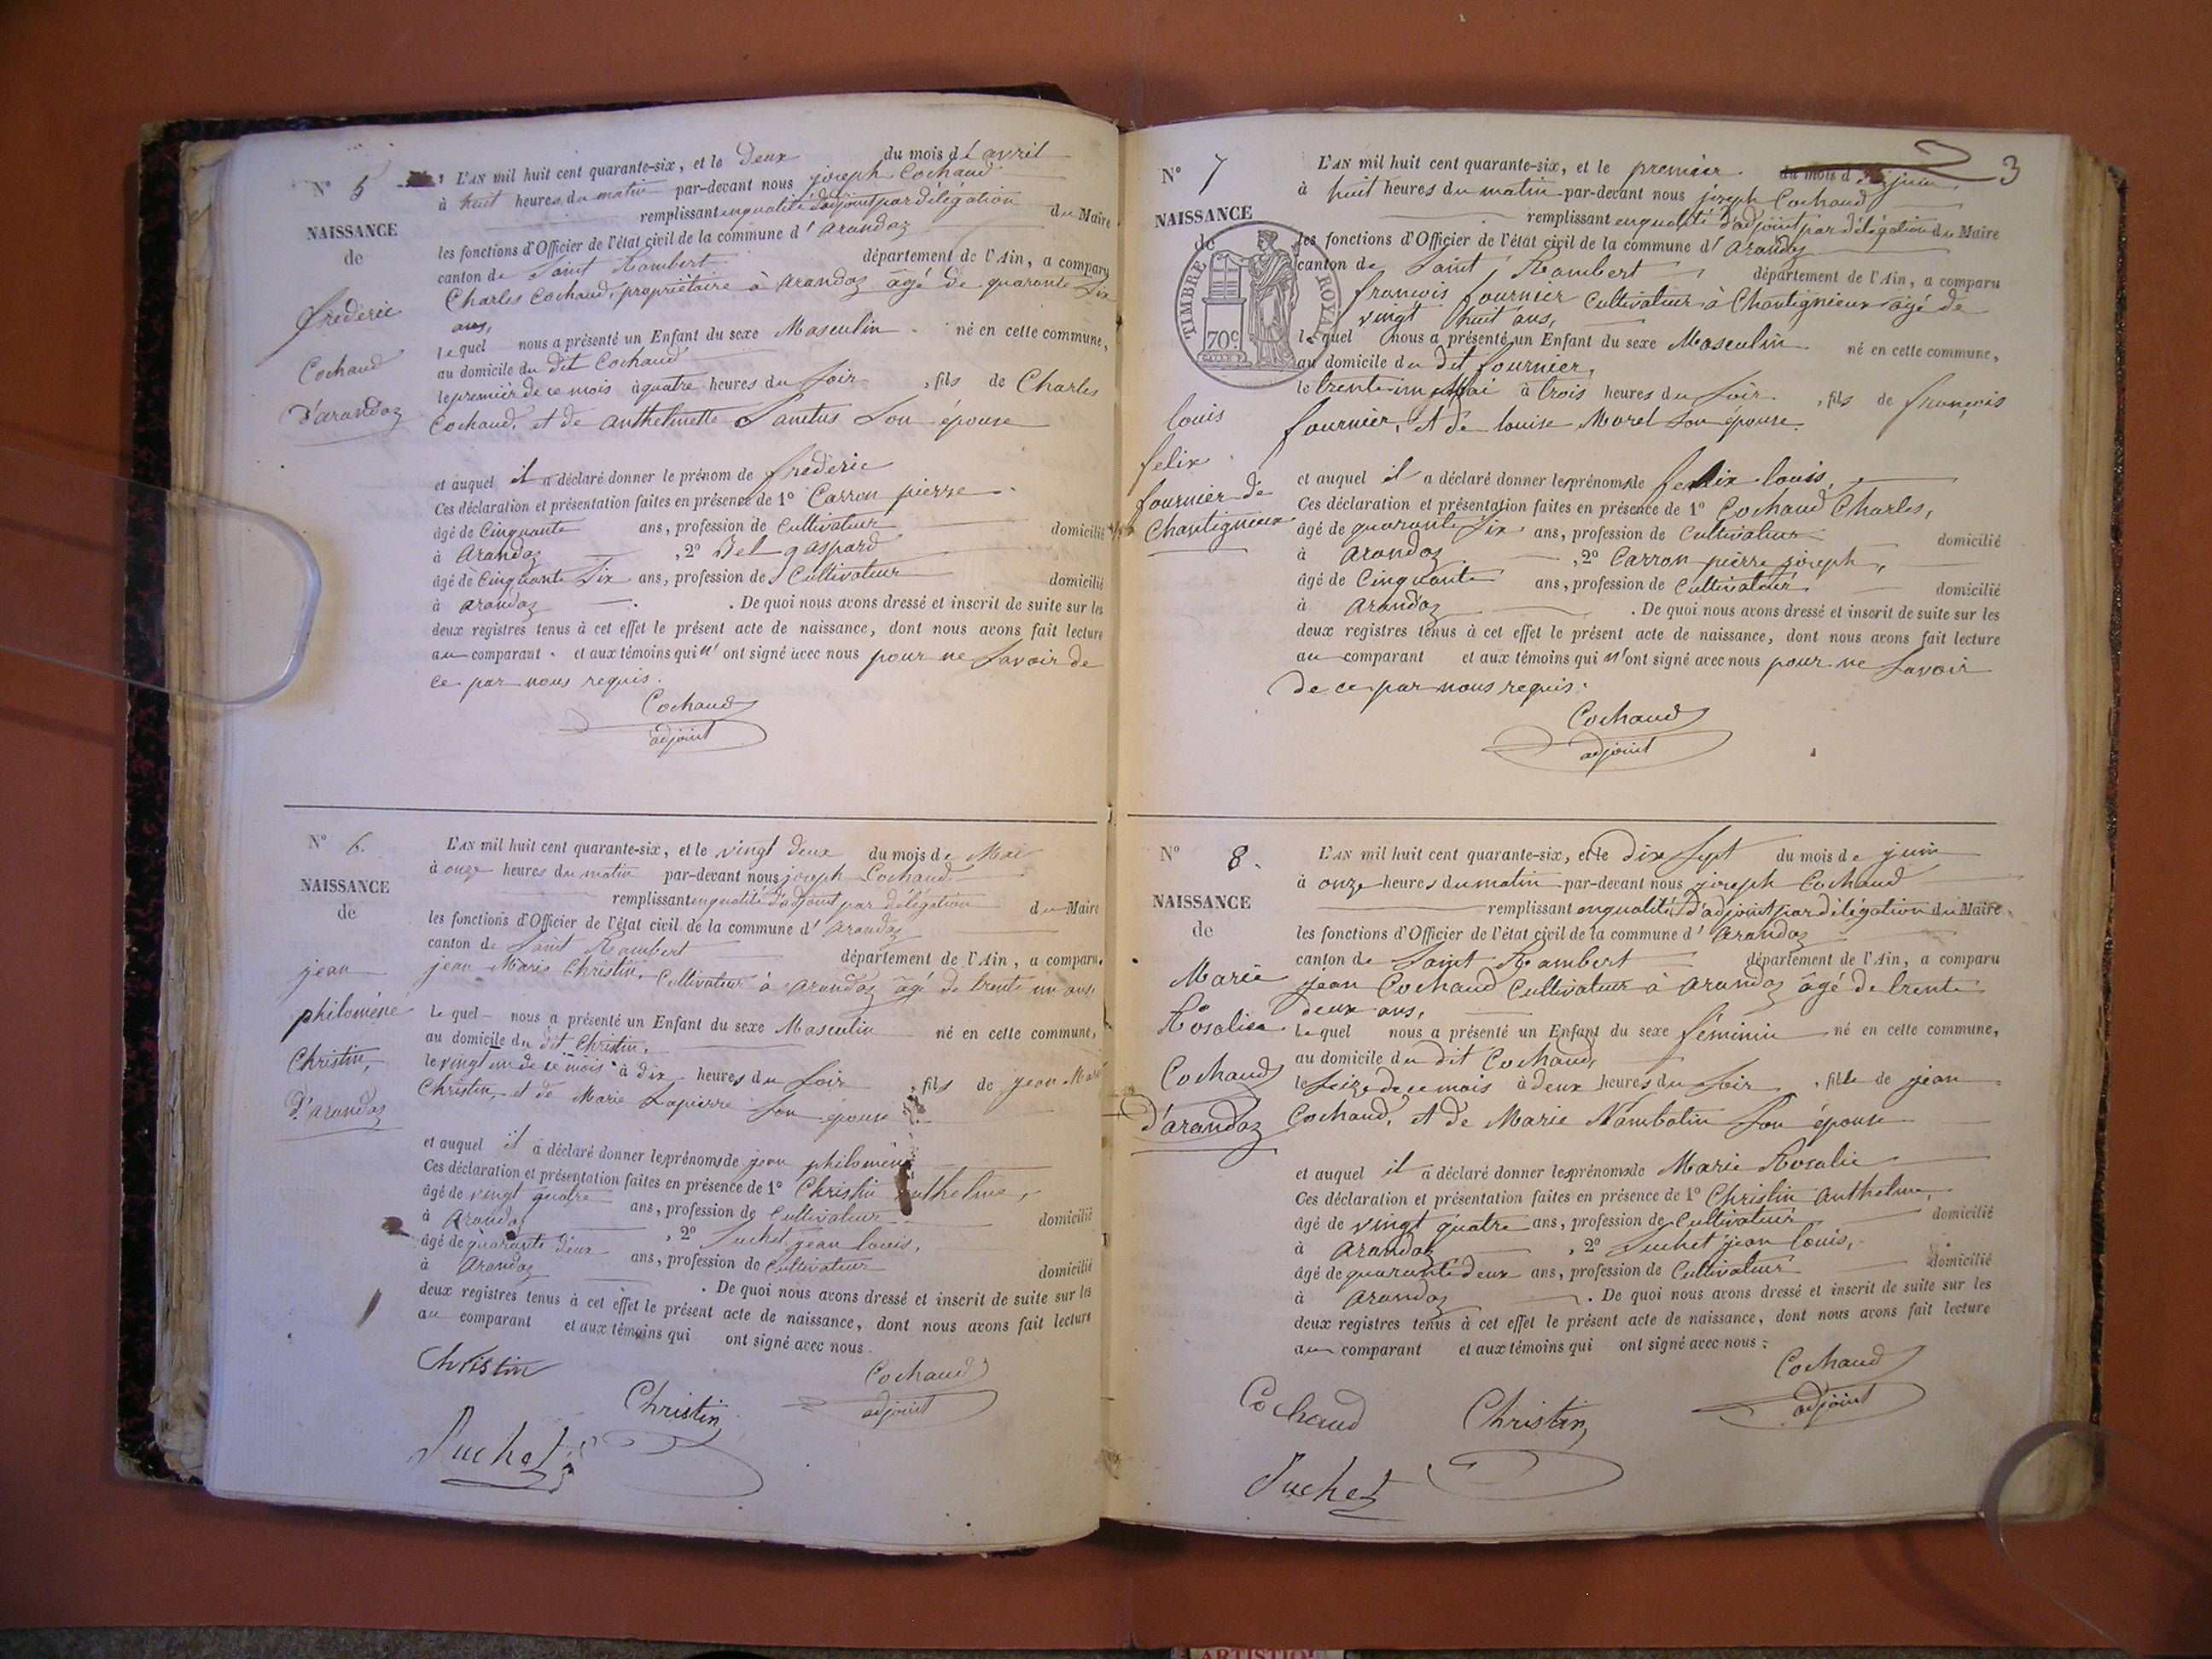 N° 5
NAISSANCE
de
frédéric
Cochaud
d'arandaz
L'AN mil huit cent quarante-six, et le deux du mois d'avril
à huit heures du matin par-devant nous joseph Cochaud
remplissant enqualité d'adjoint par délégation du Maire
les fonctions d'Officier de l'état civil de la commune d'arandaz
canton de Saint Rambert département de l'Ain, a comparu
Charles Cochaud, propriétaire à arandaz âgé de quarante six
ans,
lequel nous a présenté un Enfant du sexe Masculin né en cette commune,
au domicile du dit Cochaud
le premier de ce mois à quatre heures du soir, fils de Charles
Cochaud, et de anthelmette Sanctus son épouse
et auquel il a déclaré donner le prénom de frédéric
Ces déclaration et présentation faites en présence de 1° Carron pierre
âgé de Cinquante ans, profession de Cultivateur domicilié
à arandaz, 2° Bel gaspard
âgé de Cinquante Six ans, profession de Cultivateur domicilié
à arandaz . De quoi nous avons dressé et inscrit de suite sur les
deux registres tenus à cet effet le présent acte de naissance, dont nous avons fait lecture
au comparant et aux témoins qui n'ont signé avec nous pour ne savoir de
ce par nous requis.
Cochaud
adjoint
N° 6.
NAISSANCE
de
jean
philoméné
Christin,
d'arandaz
L'AN mil huit cent quarante-six, et le vingt deux du mois de Mai
à onze heures du matin par-devant nous joseph Cochaud
remplissant enqualité d'adjoint par délégation du Maire
les fonctions d'Officier de l'état civil de la commune d'arandaz
canton de Saint Rambert département de l'Ain, a comparu
jean Marie Christin, Cultivateur à arandaz âgé de trente un ans
lequel nous a présenté un Enfant du sexe Masculin né en cette commune,
au domicile du dit Christin,
le vingt un de ce mois à dix heures du soir, fils de jean Marie
Christin, et de Marie Lapierre son épouse
et auquel il a déclaré donner les prénoms de jean philoméné
Ces déclaration et présentation faites en présence de 1° Christin anthelme,
âgé de vingt quatre ans, profession de Cultivateur domicilié
à arandaz, 2° Suchet jean louis,
âgé de quarante deux ans, profession de Cultivateur domicilié
à arandaz . De quoi nous avons dressé et inscrit de suite sur les
deux registres tenus à cet effet le présent acte de naissance, dont nous avons fait lecture
au comparant et aux témoins qui ont signé avec nous.
Christin
Cochaud
Christin
adjoint
Suchet
3
N° 7
NAISSANCE
de
TIMBRE ROYAL
70c
louis
felix
fournier de
Chantignieux
L'AN mil huit cent quarante-six, et le premier du mois de juin
à huit heures du matin par-devant nous joseph Cochaud
remplissant enqualité d'adjoint par délégation du Maire
les fonctions d'Officier de l'état civil de la commune d'arandaz
canton de Saint Rambert département de l'Ain, a comparu
françois fournier Cultivateur à Chantignieux âgé de
vingt huit ans,
lequel nous a présenté un Enfant du sexe Masculin né en cette commune,
au domicile du dit fournier,
le trente un Mai à trois heures du soir, fils de françois
fournier, et de louise Morel son épouse.
et auquel il a déclaré donner les prénoms de felix louis,
Ces déclaration et présentation faites en présence de 1° Cochaud Charles,
âgé de quarante Six ans, profession de Cultivateur domicilié
à arandaz, 2° Carron pierre joseph,
âgé de Cinquante ans, profession de Cultivateur domicilié
à arandaz . De quoi nous avons dressé et inscrit de suite sur les
deux registres tenus à cet effet le présent acte de naissance, dont nous avons fait lecture
au comparant et aux témoins qui n'ont signé avec nous pour ne savoir
de ce par nous requis.
Cochaud
adjoint
N° 8.
NAISSANCE
de
Marie
Rosalie
Cochaud
d'arandaz
L'AN mil huit cent quarante-six, et le dix sept du mois de juin
à onze heures du matin par-devant nous joseph Cochaud
remplissant enqualité d'adjoint par délégation du Maire
les fonctions d'Officier de l'état civil de la commune d'arandaz
canton de Saint Rambert département de l'Ain, a comparu
jean Cochaud Cultivateur à arandaz âgé de trente
deux ans,
lequel nous a présenté un Enfant du sexe féminin né en cette commune,
au domicile du dit Cochaud,
le seize de ce mois à deux heures du soir, fille de jean
Cochaud, et de Marie Nambotin son épouse
et auquel il a déclaré donner les prénoms de Marie Rosalie
Ces déclaration et présentation faites en présence de 1° Christin anthelme,
âgé de vingt quatre ans, profession de Cultivateur domicilié
à arandaz, 2° Suchet jean louis,
âgé de quarante deux ans, profession de Cultivateur domicilié
à arandaz . De quoi nous avons dressé et inscrit de suite sur les
deux registres tenus à cet effet le présent acte de naissance, dont nous avons fait lecture
au comparant et aux témoins qui ont signé avec nous:
Cochaud
Cochaud Christin adjoint
Suchet